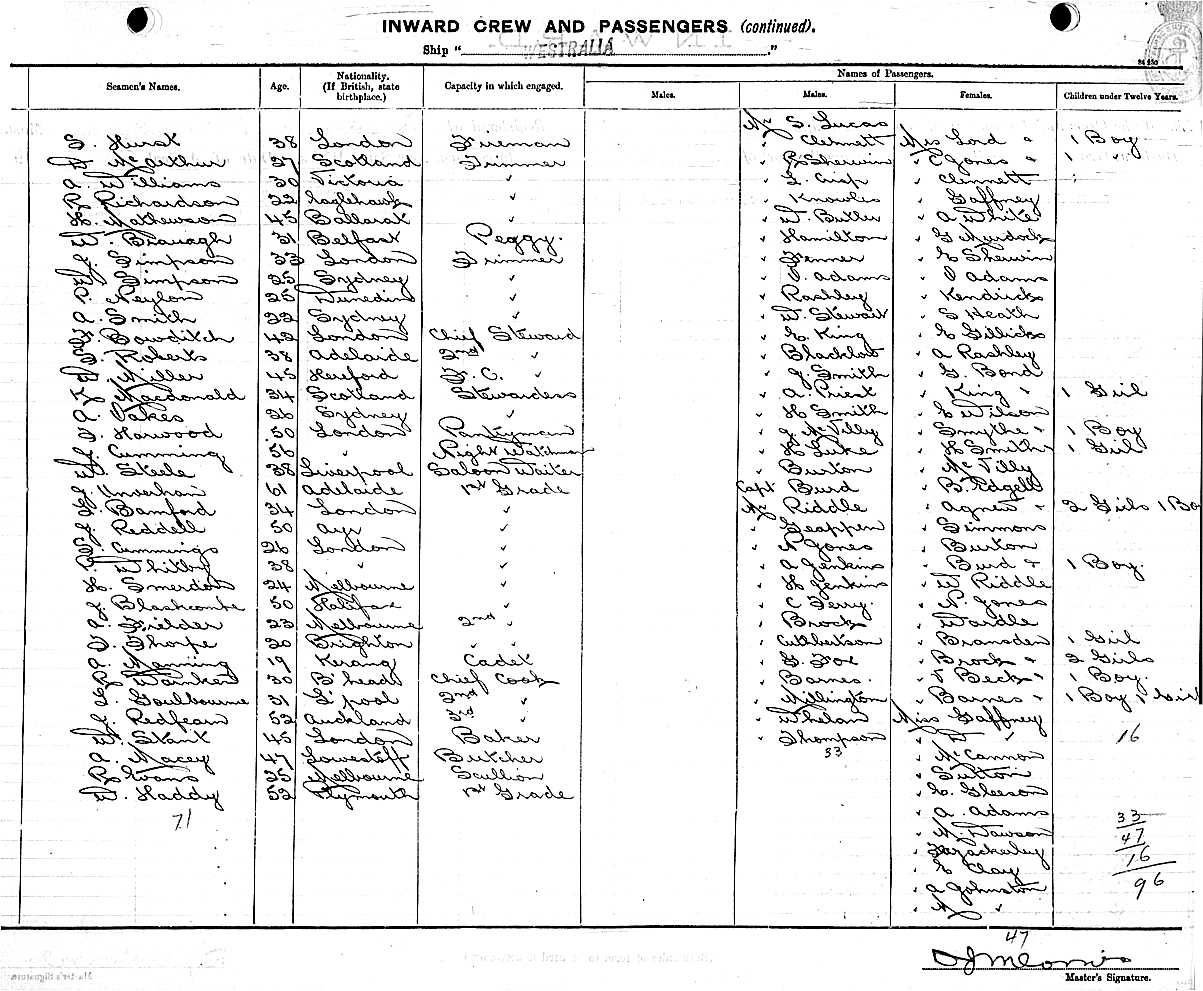 INWARD CREW AND PASSENGERS (continued).
Ship " WESTRALIA "
Seamen's Names. Age. Nationality. (If British, state birthplace.) Capacity in which engaged. Names of Passengers.
Males. Males. Females. Children under Twelve Years.
Mr S. Lucas
Hurst 38 London Fireman " Clennett Mes Lord " 1 Boy
McArthur 27 Scotland Trimmer " Sherwin " C Jones " 1 "
A. Williams 30 Victoria " " L. Crisp " Clennett
R Richardson 22 Eaglehawk " " Knowles " Gaffney
H. Mathewson 45 Ballarat " " W. Butler " A White
W. 31 Belfast Peggy. " Hamilton " G Murdock
Simpson 33 London Trimmer " Fenner " E Sherwin
Simpson 25 Sydney " " Adams " Adams
Neylon 25 Dunedin " " Rashley " Kendricks
A. Smith 22 Sydney " " W. Stewart " S Heath
Bowditch 42 London Chief Steward " E. King " E Gillicks
Roberts 38 Adelaide 2nd " " Blacklow " A Rashley
Miller 45 Hereford F. C. " " J. Smith " G. Bond
Macdonald 34 Scotland Stewardess " A. Priest " King " 1 Girl
A 26 Sydney " " H Smith " E Wilson
Harwood 50 London Pantryman " J. McTilly " Smythe " 1 Boy
Cumming 56 " Night Watchman " H Luke " H Smith " 1 Girl
Steele 38 Liverpool Saloon Waiter " Burton " McTilly
61 Adelaide 1st Grade Capt Burd " B. Edgell
Bamford 34 London " Mr Riddle " Agnes " 2 Girls 1 Bo
Reddell 50 Ayr " " Geappen " Simmons
Cummings 26 London " " N Jones " Burton
Whitby 38 " " " A Jenkins " Burd " 1 Boy.
H. Smerdon 24 Melbourne " " H Jenkins " W Riddle
J. Blashcombe 50 Halifax " " C Ferry. " N. Jones
A. Fielder 23 Melbourne 2nd " " Brock " Wardle
Thorpe 20 Brighton " " " Cuthbertson " Bramsden 1 Girl
A. Manning 19 Kerang Cadet " G. Fox " Brock " 2 Girls
30 B'head Chief Cook " Barnes. " Beck " 1 Boy.
Goulbourne 31 L'pool 2nd " " Millington " Barnes " 1 Boy 1 Girl
J. Redfearn 52 Auckland 3rd " " Whelan Miss Gaffney
W. Stant 45 London Baker " Thompson 16
A. Macey 47 Lowestoff Butcher 33 " McCannon
R Evans 25 Melbourne Scullion " Sutton
W. Haddy 52 Plymouth 1st Grade " E. Gleeson
71 " A. Adams 33
" M. Dawson 47
" 16
" E Clay 96
" A Johnston
47
Master's Signature.